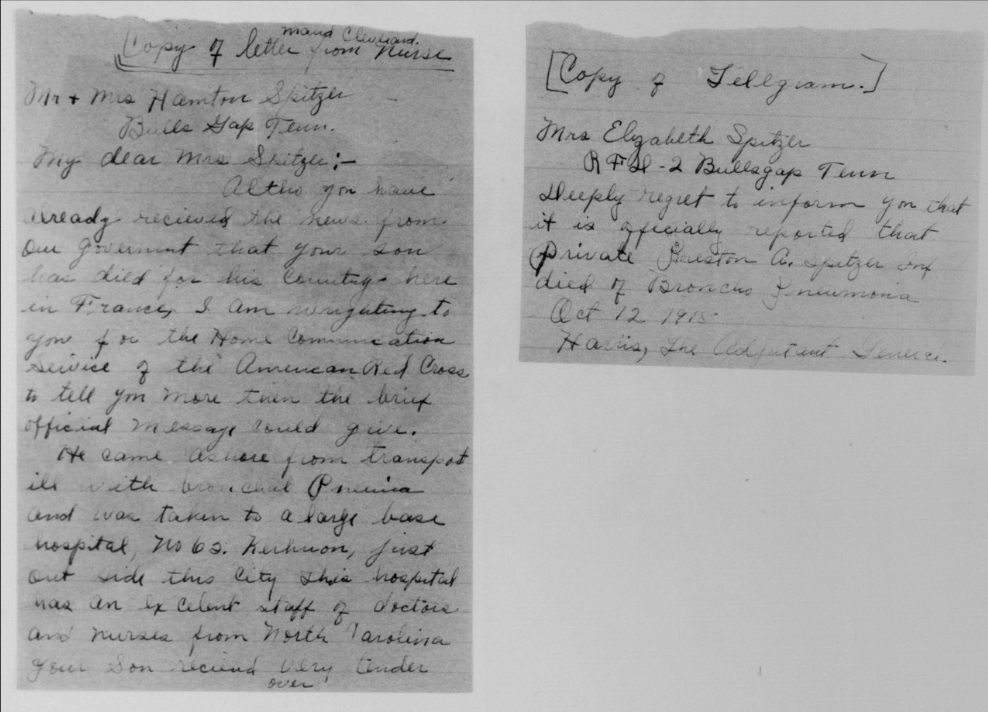 Maud Cleveland.
[Copy of letter from Nurse
Mr + Mrs Hamton Spitzer
Bulls Gap Tenn.
My dear Mrs Spitzer:-
Altho you have
already recieved the news from
our Goverment that your son
has died for his Country here
in France, I am to
you for the Home Communication
Service of the American Red Cross
to tell you more then the brief
official message could give.
He came ashore from transpot
ill with bronchal
and was taken to a large base
hospital, No 65. Kerhuon, just
out side this City This hospital
has an excelent staff of doctors
and nurses from North Carolina
your Son very tender
over
[Copy of Tellegram.]
Mrs Elizabeth Spitzer
RFD-2 Bullsgap Tenn
Deeply regret to inform you that
it is officially reported that
Private Preston A. Spitzer Inf
died of Broncho Pneumonia
Oct 12 1918
Harris, The Adjutant General.